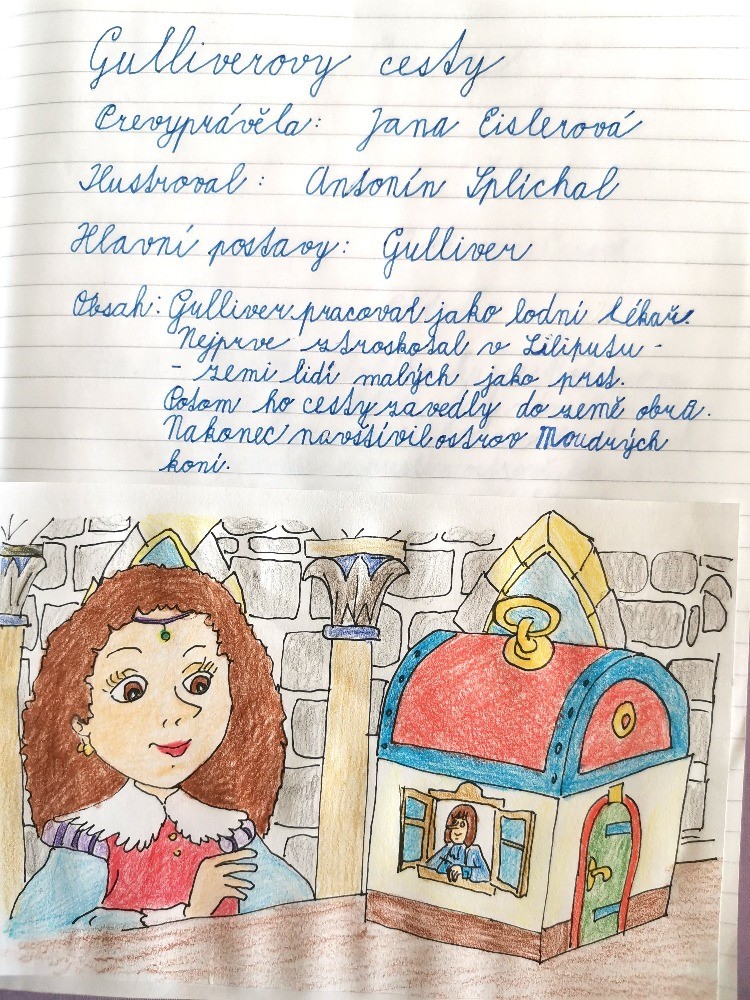 Gulliverovy cesty
Převyprávěla: Jana Eislerová
Ilustroval: Antonín Šplíchal
Hlavní postavy: Gulliver
Obsah: Gulliver pracoval jako lodní lékař.
Nejprve ztroskotal v Liliputu -
- zemi lidí malých jako prst.
Potom ho cesty zavedly do země obrů.
Nakonec navštívil ostrov Moudrých
koní.